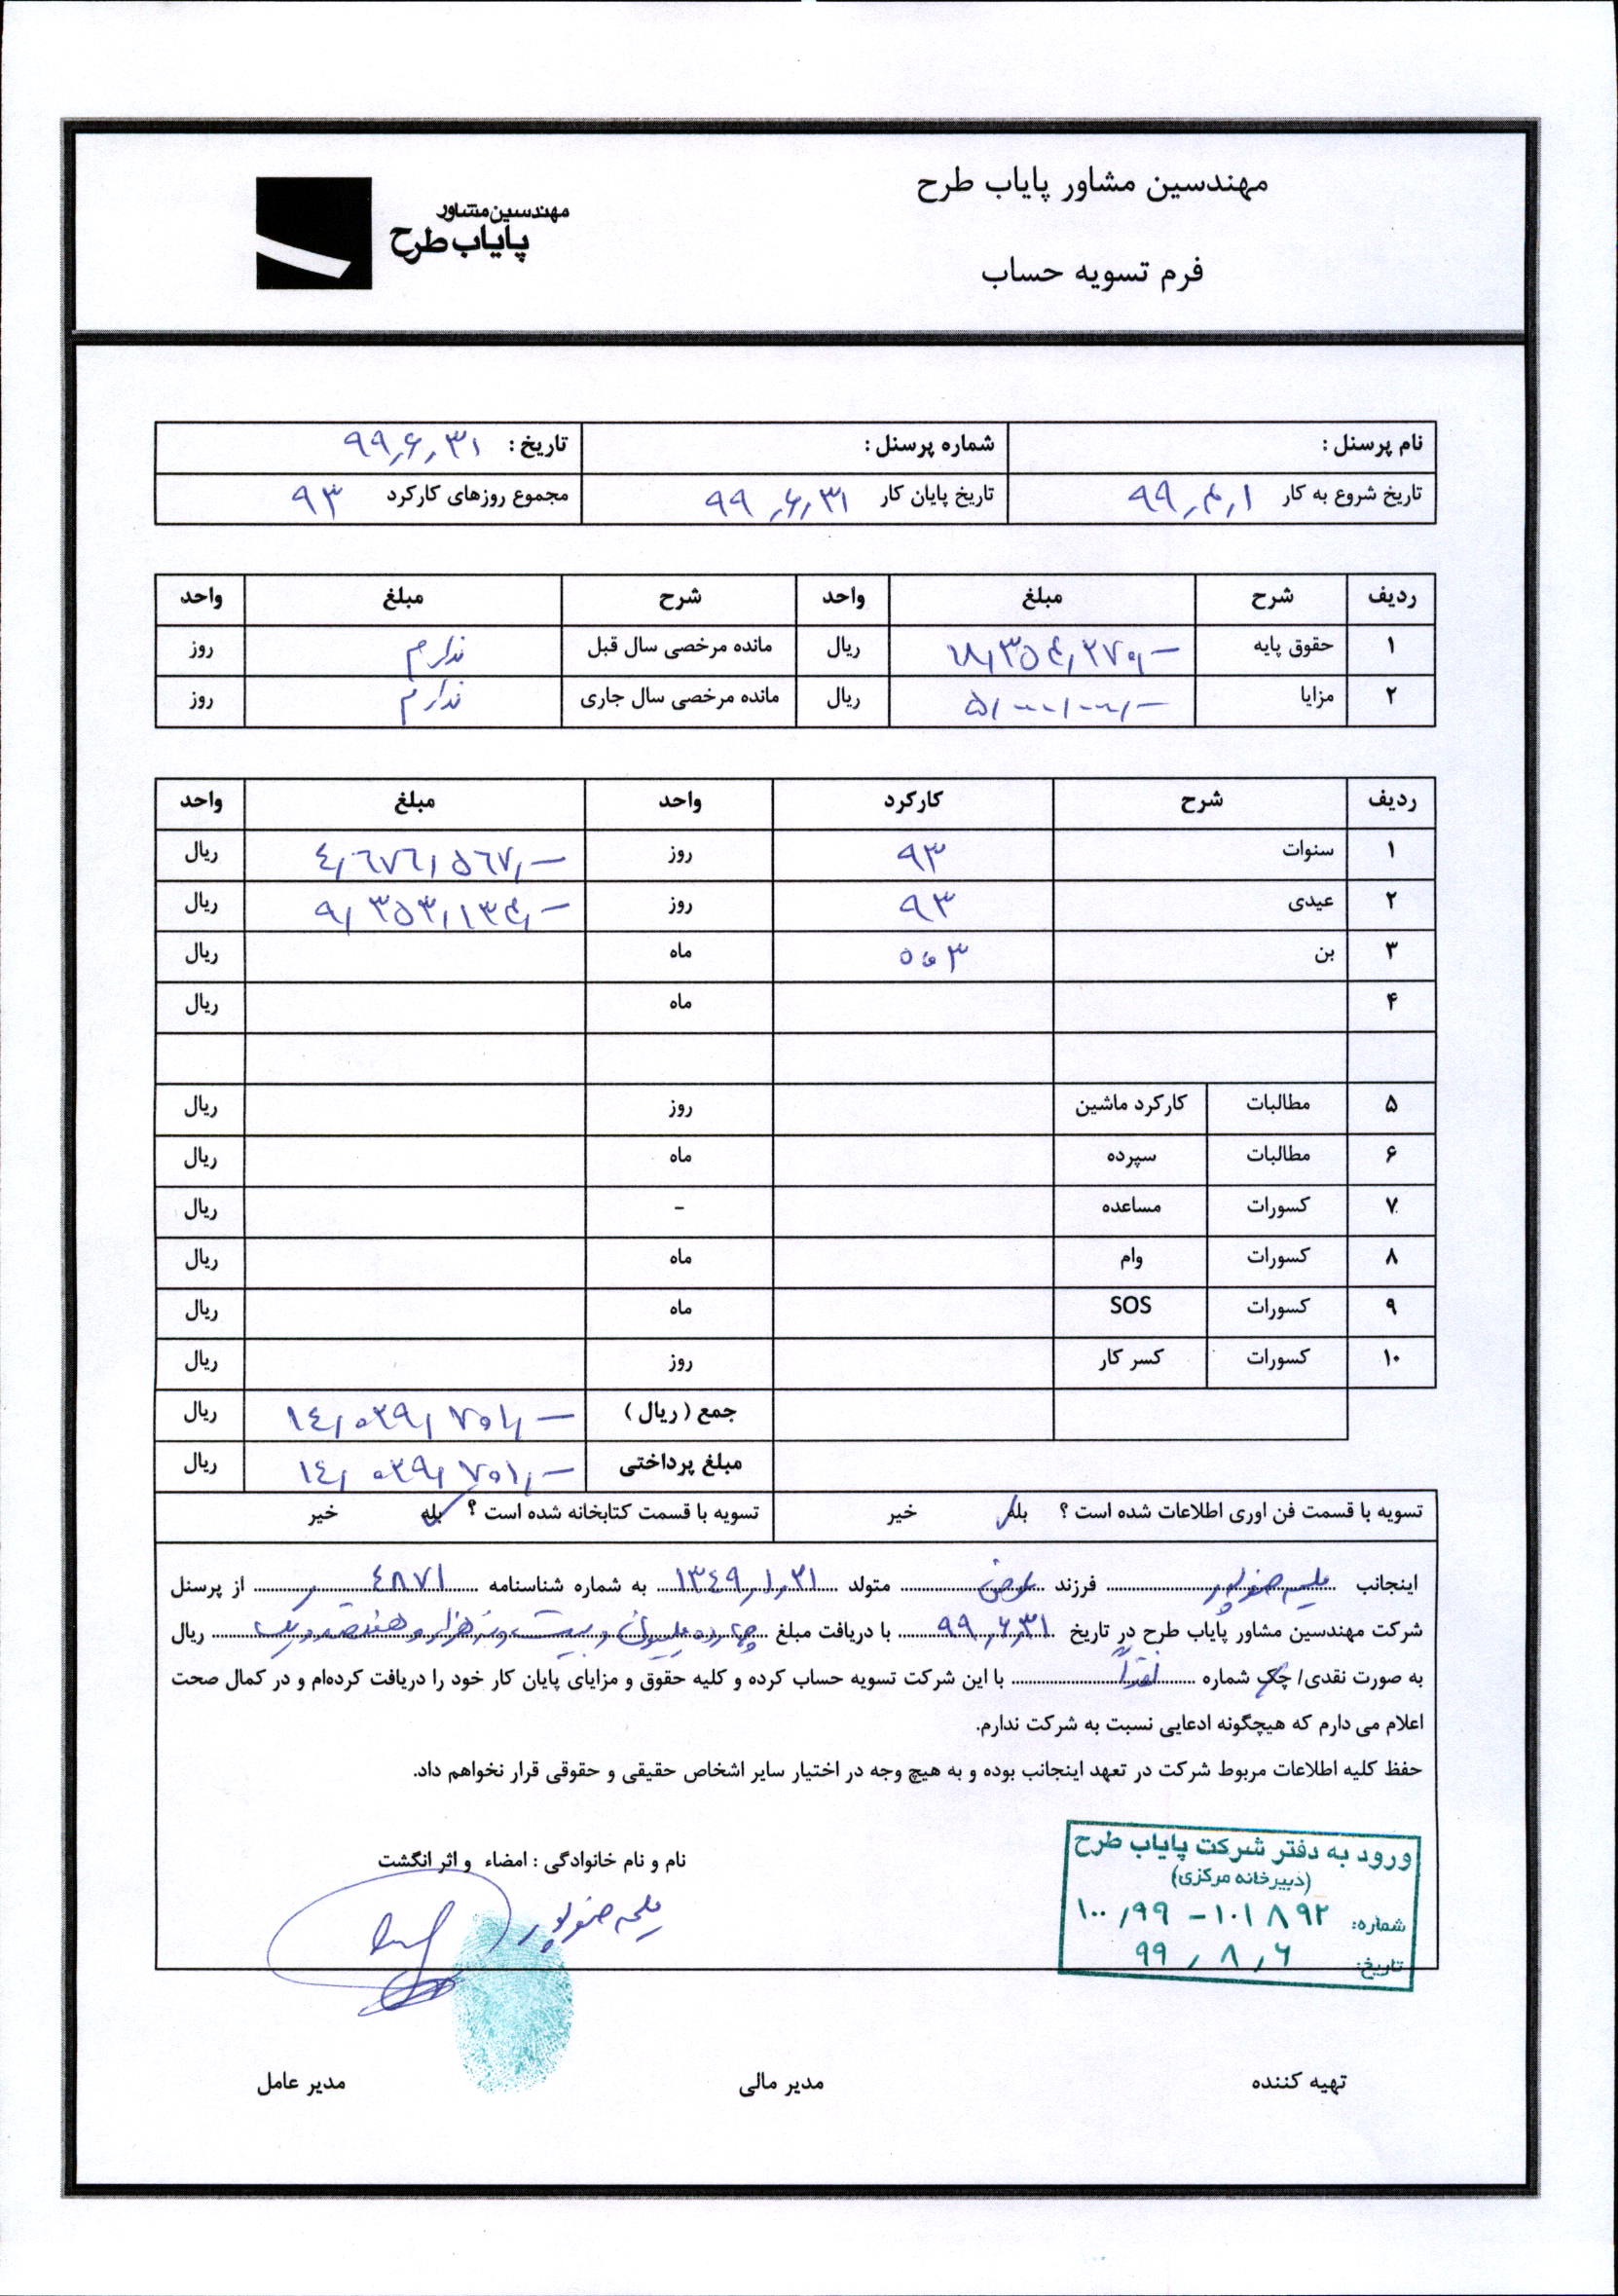 مهندسین مشاور پایاب طرح
مهندسین مشاور
پایاب طرح
فرم تسویه حساب
نام پرسنل : شماره پرسنل : تاریخ : ۹۹٫۶٫۳۱
تاریخ شروع به کار ۹۹٫۴٫۱ تاریخ پایان کار ۹۹٫۶٫۳۱ مجموع روزهای کارکرد ۹۳
ردیف شرح مبلغ واحد شرح مبلغ واحد
۱ حقوق پایه ریال مانده مرخصی سال قبل ندارم روز
۲ مزایا ریال مانده مرخصی سال جاری ندارم روز
ردیف شرح کارکرد واحد مبلغ واحد
۱ سنوات ۹۳ روز ٤٫٦٧٦٫٥٦٧٫- ریال
۲ عیدی ۹۳ روز ۹٫۳۵۳٫۱۳۴٫- ریال
۳ بن ماه ریال
۴ ماه ریال
۵ مطالبات کارکرد ماشین روز ریال
۶ مطالبات سپرده ماه ریال
۷ کسورات مساعده - ریال
۸ کسورات وام ماه ریال
۹ کسورات SOS ماه ریال
۱۰ کسورات کسر کار روز ریال
جمع ( ریال ) ۱٤٫۰۲۹٫۷۰۱٫- ریال
مبلغ پرداختی ۱٤٫۰۲۹٫۷۰۱٫- ریال
تسویه با قسمت فن اوری اطلاعات شده است ؟ بله خیر تسویه با قسمت کتابخانه شده است ؟ بله خیر
اینجانب فرزند متولد ۱۳٤۹٫۱٫۳۱ به شماره شناسنامه ٤۸۷۱ از پرسنل
شرکت مهندسین مشاور پایاب طرح در تاریخ ۹۹٫۶٫۳۱ با دریافت مبلغ چهارده میلیون و بیست و نه هزار و هفتصد و یک ریال
به صورت نقدی/ چک شماره نقداً با این شرکت تسویه حساب کرده و کلیه حقوق و مزایای پایان کار خود را دریافت کرده‌ام و در کمال صحت
اعلام می دارم که هیچگونه ادعایی نسبت به شرکت ندارم.
حفظ کلیه اطلاعات مربوط شرکت در تعهد اینجانب بوده و به هیچ وجه در اختیار سایر اشخاص حقیقی و حقوقی قرار نخواهم داد.
نام و نام خانوادگی : امضاء و اثر انگشت
ورود به دفتر شرکت پایاب طرح
(دبیرخانه مرکزی)
شماره: ۱۰۰٫۹۹ - ۱۰۱۸۹۲
تاریخ: ۹۹٫۸٫۶
تهیه کننده مدیر مالی مدیر عامل